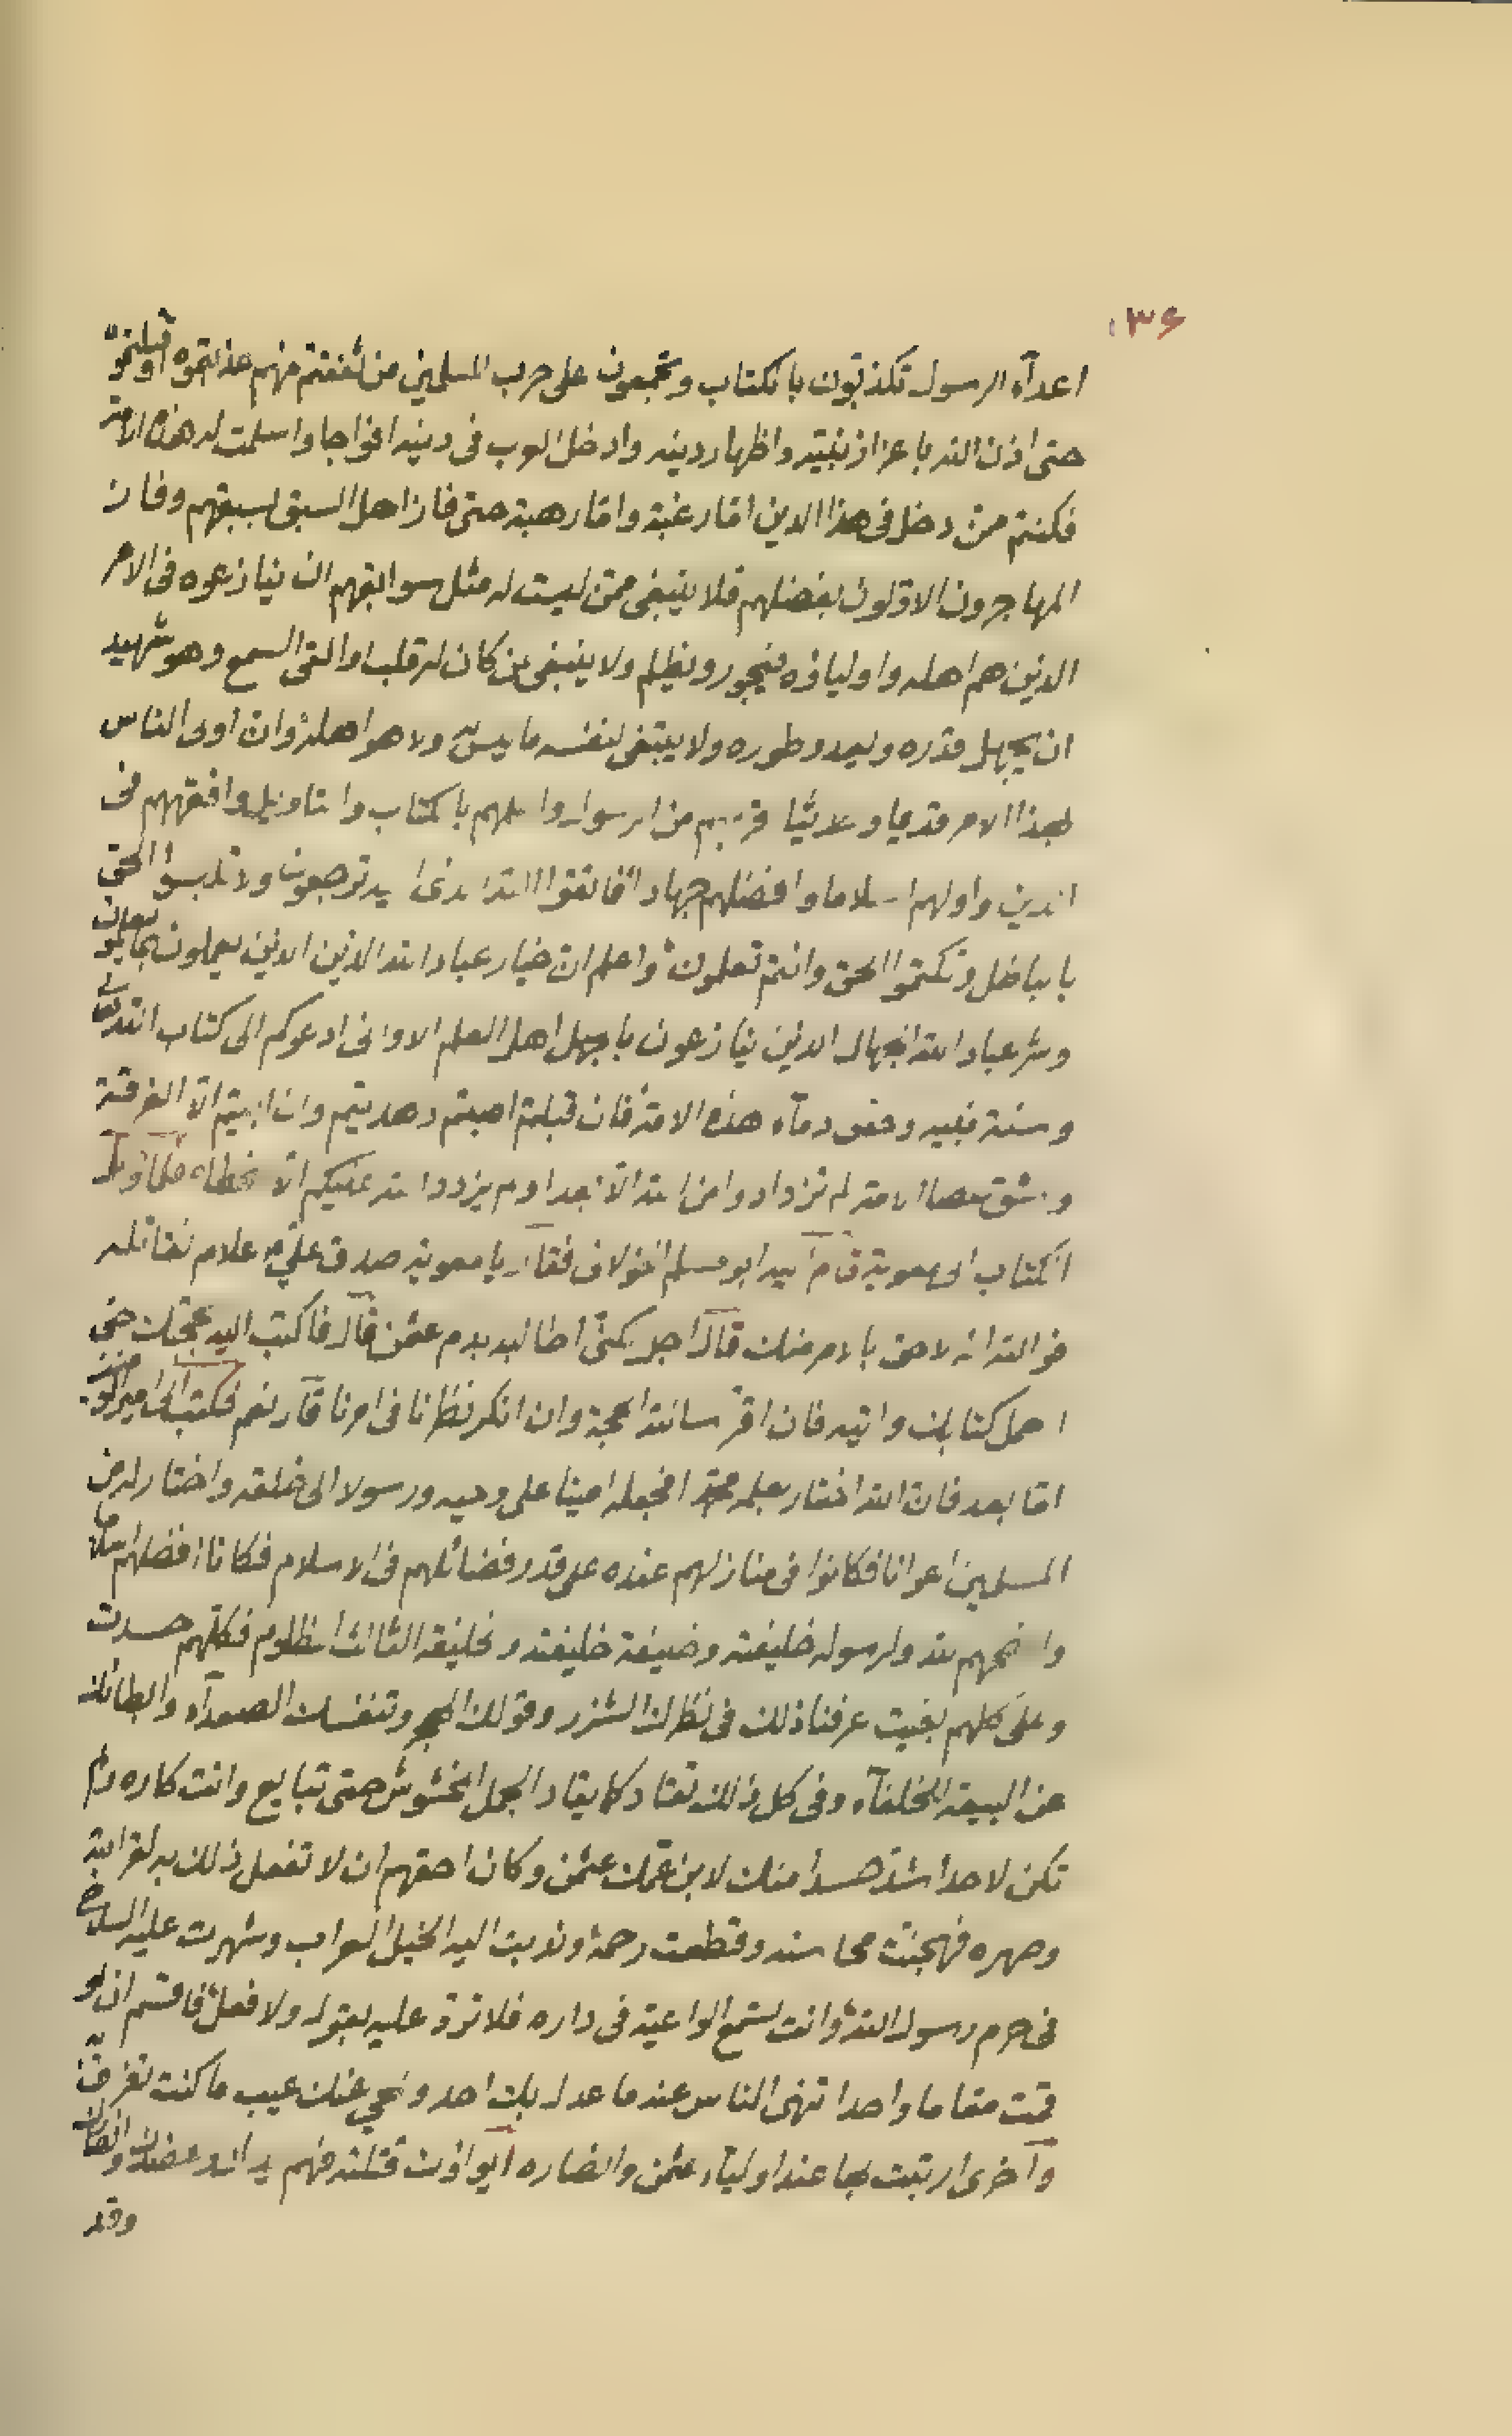 ۱۳۶
اعدآء الرسول تكذبون بالكتاب وتجمعون على حرب المسلمين من ثقفتم منهم عذبتموه او قتلتموه
حتى اذن الله باعزاز نبيّه واظهار دينه وادخل العرب في دينه افواجا واسلمت له هذه الامة
فكنتم ممن دخل في هذا الدين امّا رغبة وامّا رهبة حتى فاز اهل السبق لسبقهم وفاز
المهاجرون الاوّلون بفضلهم فلا ينبغي ممّن ليست له مثل سوابقهم ان ينازعوه في الامر
الذين هم اهله واولياؤه فيجور ويظلم ولا ينبغي لمن كان له قلب او القى السمع وهو شهيد
ان يجهل قدره وليعدو طوره ولا يبتغي لنفسه ما ليس له ولا هو اهله وان اولى الناس
لهذا الامر قديما وحديثا قربهم من الرسول واعلمهم بالكتاب والتاويل وافقههم في
الدين واولهم اسلاما وافضلهم جهادا فاتقوا الله الذي اليه ترجعون ولا تلبسوا الحق
بالباطل وتكتموا الحق وانتم تعلمون واعلم ان خيار عباد الله الذين الذين يعملون بما يعلمون
وشر عباد الله الجهال الذين ينازعون بالجهل اهل العلم الا واني ادعوكم الى كتاب الله تعالى
وسنة نبيه وحقن دمآء هذه الامة فان قبلتم اصبتم وهديتم وان ابيتم الّا الفرقة
وشق عصا الامة لم تزدادوا من الله الّا بعدا ولم يزدد الله عليكم الّا سخطا فلما وصل
الكتاب الى معوية قام اليه ابو مسلم الخولاني فقال يا معوية صدق علي علام نقاتله
فوالله انه لاحق بالامر منك قال اجل لكنّي اطالبه بدم عثمن قال فاكتب اليه بحجتك حتى
احمل كتابك واتيه فان اقرّ سالته الحجة وان انكر نظرنا في امرنا قال نعم فكتب الى امير المؤمنين
امّا بعد فان الله اختار بعلمه محمدا فجعله امينا على وحيه ورسولا الى خلقه واختار له من
المسلمين اعوانا فكانوا في منازلهم عنده على قدر فضائلهم في الاسلام فكانا افضلهم اسلاما
وانصحهم لله ولرسوله خليفته وخليفة خليفته والخليفة الثالث المظلوم فكلّهم حسدت
وعلى كلهم بغيت عرفنا ذلك في نظرك الشزر وقولك الهجر وتنفسك الصعدآء وابطائك
عن البيعة للخلفآء وفي كل ذلك تقاد كما يقاد الجمل المخشوش حتى تبايع وانت كاره ولم
تكن لاحد اشدّ حسدا منك لابن عمّك عثمن وكان احقهم ان لا تفعل ذلك به لقرابته
وصهره فهجنت محاسنه وقطعت رحمه والبت اليه الخيل العراب وشهرت عليه السلاح
في حرم رسول الله وانت تسمع الواعية في داره فلا تردّ عليه بقول ولا فعل فاقسم ان لو
قمت مقاما واحدا تنهى الناس عنه ما عدل بك احد ومحي عنك عيب ما كنت تعرف به
وآخرى اربتت بها عند اوليآء عثمن وانصاره ايواؤك قتلته فهم يدك وعضدك وانصارك
وقد